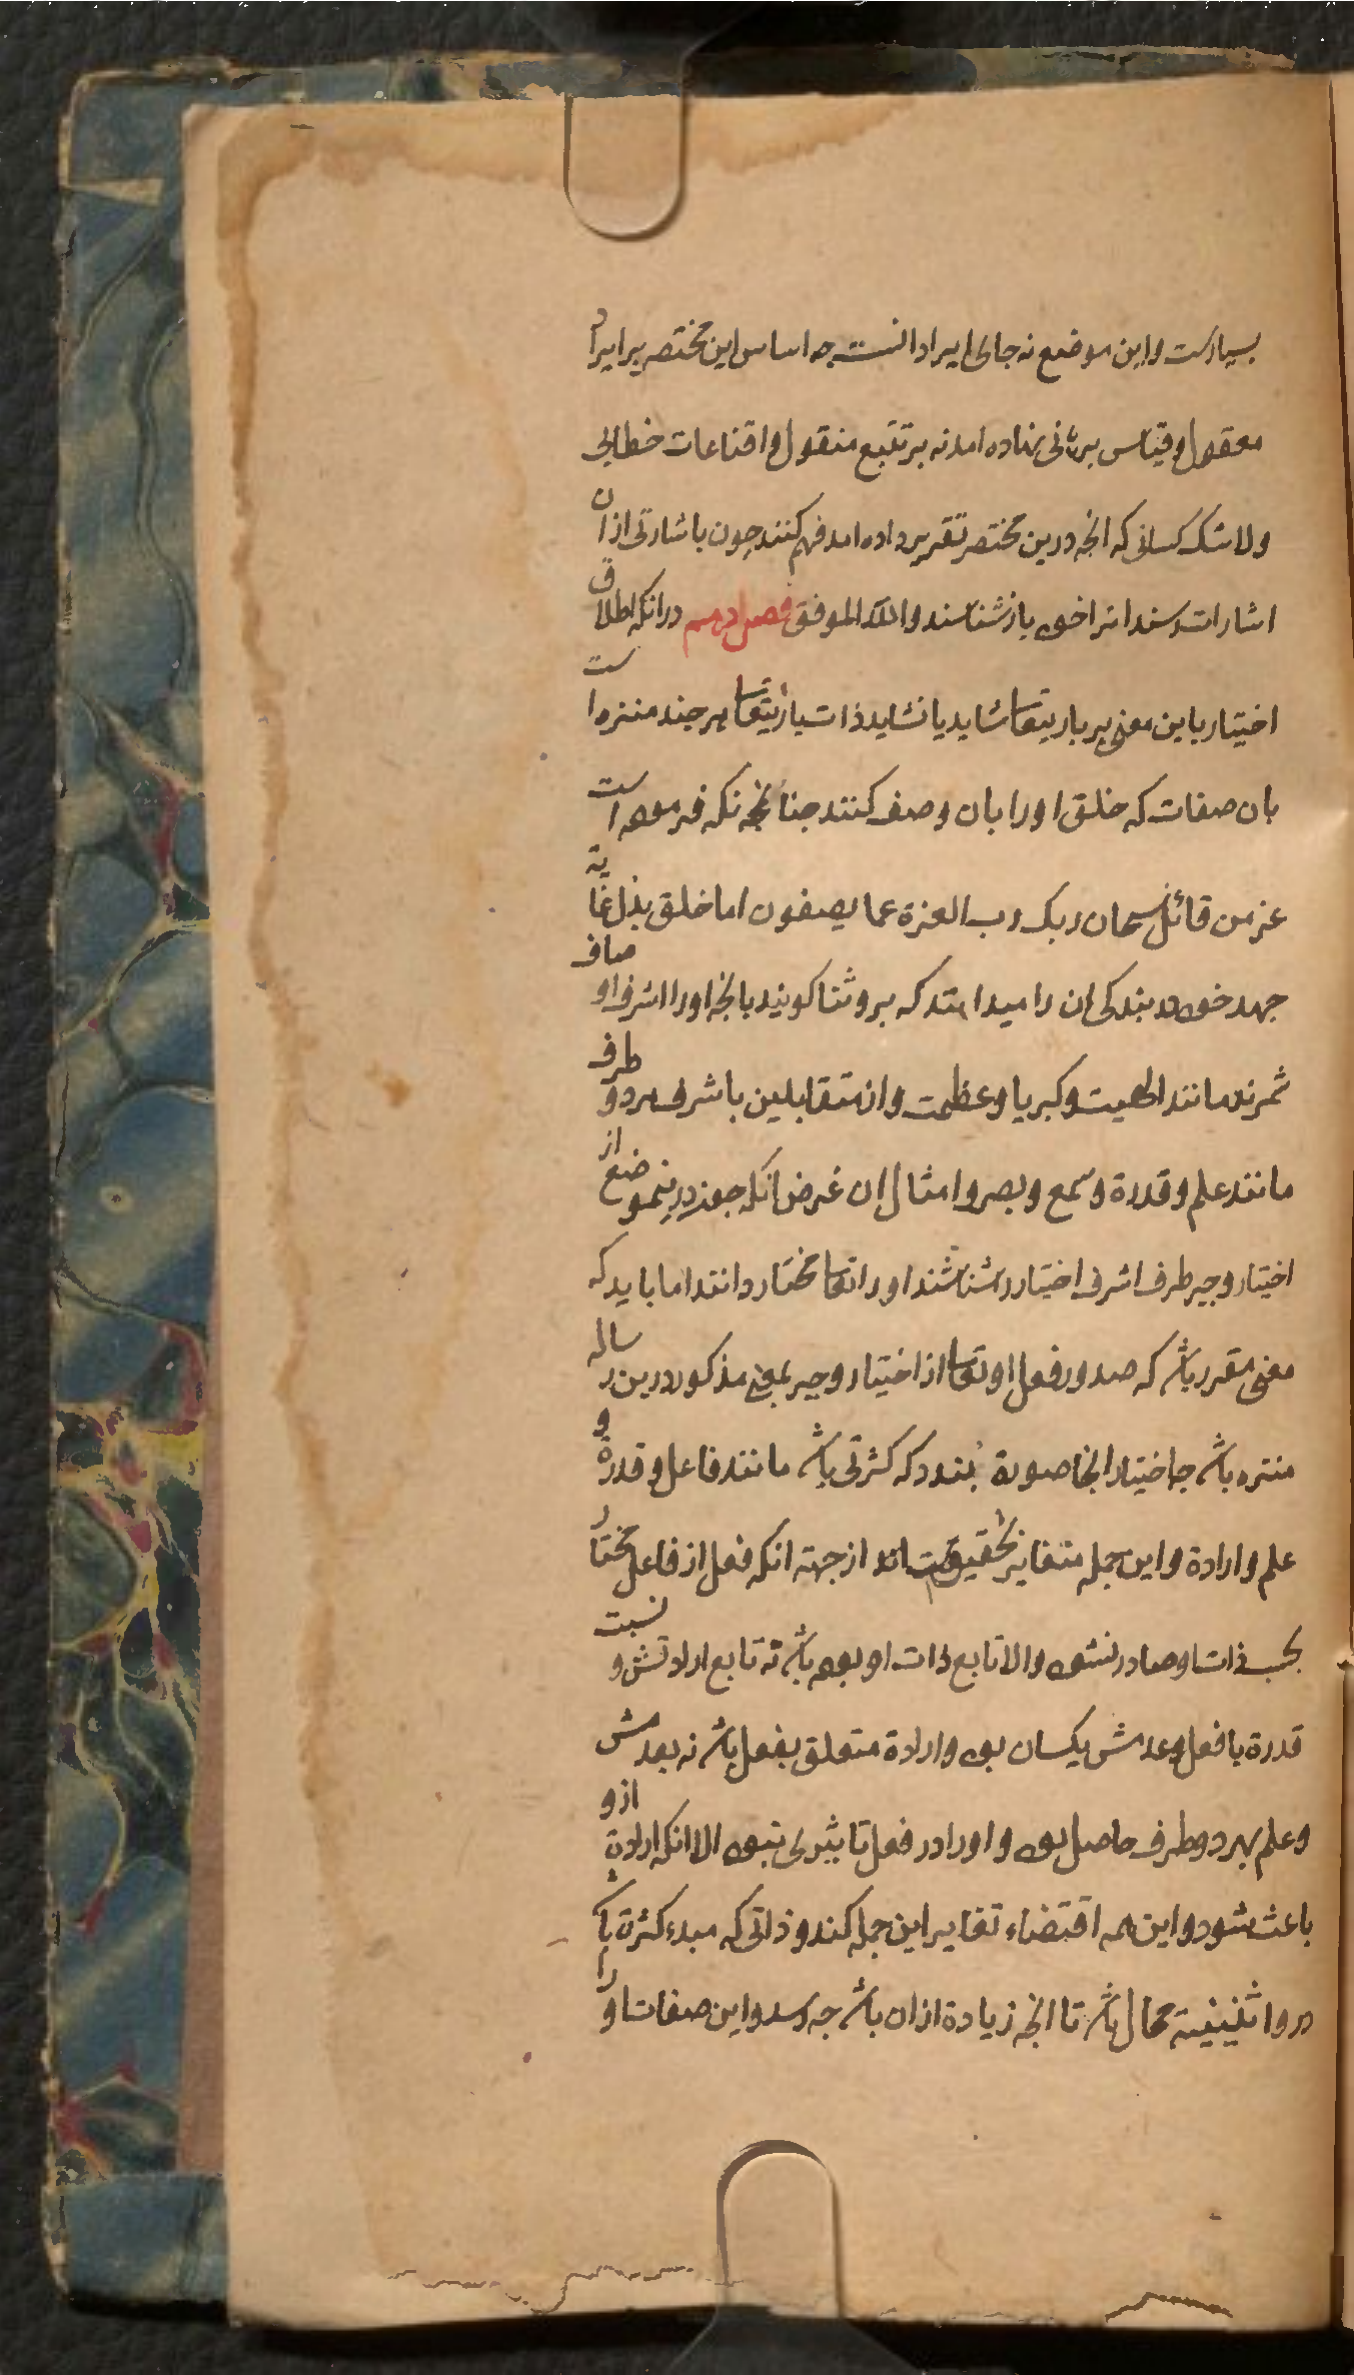 بسیارست و این موضع نه جای ایراد انست چه اساس این مختصر بر ایراد
معقول و قیاس برهانی نهاده امد نه بر تتبع منقول و اقناعات خطابی
و لا شک کسانی که انچه درین مختصر تقریر داده امد فهم کنند چون باشارتی از ان
اشارات رسند انرا خود بازشناسند والله الموفق فصل دهم در انکه اطلاق
اختیار باین معنی بر باریتعالی شاید یا نشاید ذات باریتعالی هر چند منزه است
بان صفات که خلق اورا بان وصف کنند چنانچه نکه فرموده است
عز من قائل سبحان ربک رب العزة عما یصفون اما خلق بذل غایة
جهد خود در بندکی ان را میدانند که برو ثنا کویند بانچه اورا اشرف اوصاف
شمرند مانند الهیت و کبریا و عظمت و از متقابلین باشرف هر دو طرف
مانند علم و قدرة و سمع و بصر و امثال ان غرض انکه چون درینموضع از
اختیار و جبر طرف اشرف اختیار را شناختند اورا تعالی مختار دانند اما باید که
معنی مقرر باشد که صدور فعل او تعالی از اختیار و جبر بمعنی مذکور درین رساله
منزه باشد چه اختیار انجا صورة بندد که کثرتی باشد مانند فاعل و قدرة و
علم و ارادة و این جمله متغایر بحقیقت اند از جهته انکه فعل از فاعل مختار
بحسب ذات او صادر نشود والا تابع ذات او بوده باشد نه تابع ارادتش و نسبت
قدرة با فعل و عدمش یکسان بود و ارادة متعلق بفعل باشد نه بعدمش
و علم بهر دو طرف حاصل بود و اورا در فعل تاثیری نبود الا انکه ارادة ازو
باعث شود و این همه اقتضاء تغایر این جمله کند و ذاتی که مبدء کثرة یا
درو اثنینیة محال باشد تا انچه زیادة از ان باشد چه رسد و این صفات او را